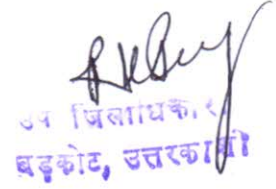 उप जिलाधिकारी
बड़कोट, उत्तरकाशी